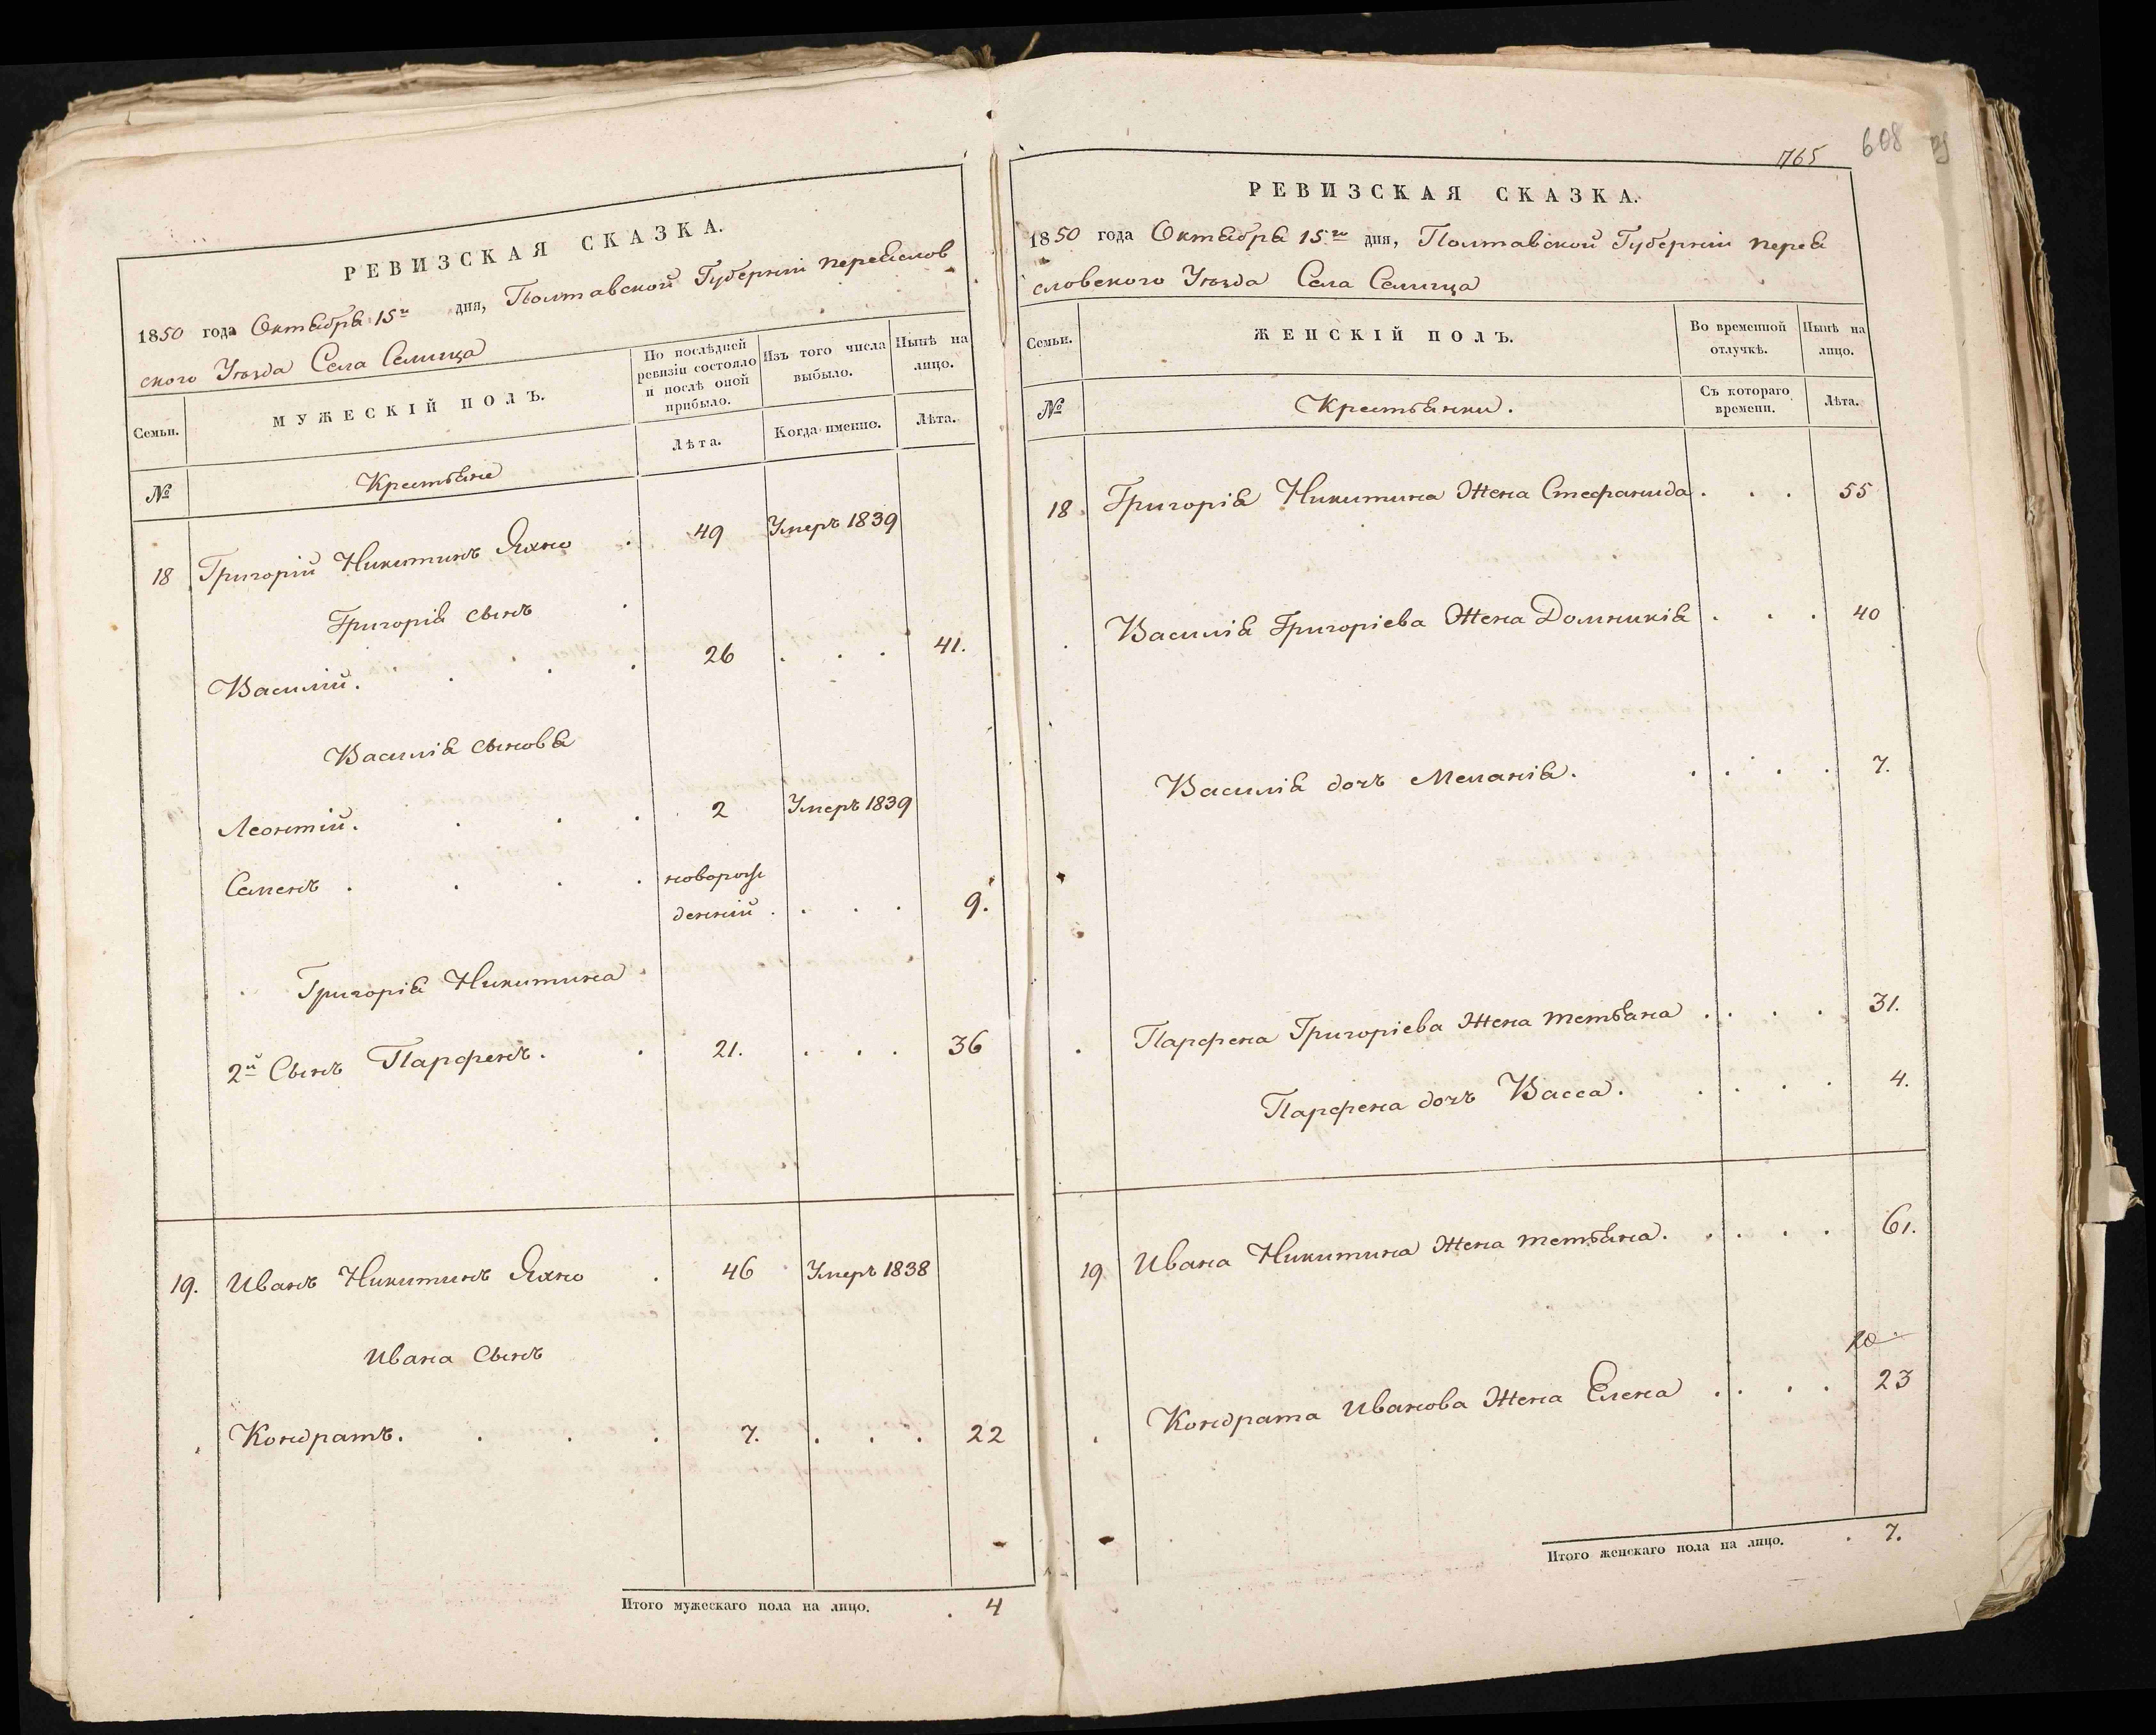 РЕВИЗСКАЯ СКАЗКА.
1850 года Октября 15го дня, Полтавской Губерніи Переяслов
ского Уезда Села Селища
Семьи.
МУЖЕСКІЙ ПОЛЪ.
По послѣдней ревизіи состояло и послѣ оной прибыло.
Изъ того числа выбыло.
Нынѣ на лицо.
Лѣта.
Когда именно.
Лѣта.
№
Крестьяне
18 Григорій Никитинъ Яхно . 49 Умеръ 1839
Григорія сынъ
Василій. . . . 26 . . . 41.
Василія сыновья
Леонтій. . . . 2 Умеръ 1839
Семенъ . . . . новорож
денній . . . . 9.
Григорія Никитина
2й Сынъ Парфенъ. . 21. . . . 36
19. Иванъ Никитинъ Яхно . 46 Умеръ 1838
Ивана Сынъ
Кондратъ. . . . 7. . . . 22
Итого мужескаго пола на лицо. . 4
765
608
РЕВИЗСКАЯ СКАЗКА.
1850 года Октября 15го дня, Полтавской Губерніи Перея
словского Уезда Села Селища
Семьи.
ЖЕНСКІЙ ПОЛЪ.
Во временной отлучкѣ.
Нынѣ на лицо.
№
Крестьянки.
Съ котораго времени.
Лѣта.
18. Григорія Никитина Жена Стефанида . . . 55
Василія Григоріева Жена Домникія . . . 40
Василія дочъ Меланія. . . . . 7.
Парфена Григоріева Жена Тетьяна . . . . 31.
Парфена дочъ Васса. . . . . 4.
19 Ивана Никитина Жена Тетьяна. . . . . 61.
Кондрата Иванова Жена Елена . . . . 23
Итого женскаго пола на лицо. . 7.